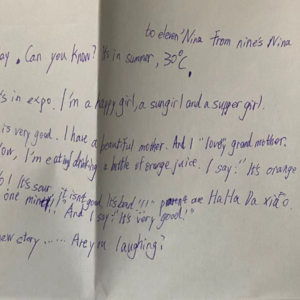 to eleven' Nina From nine's Nina
ay. Can you know? It's in summer, 30°C.
's in expo. I'm a happy girl, a sungirl and a supper girl.
is very good. I have a beautiful mother. And I "love" grand mother.
ow, I'm eating drinking a bottle of orange juice. I say: "It's orange
o! It's sour
one min it isn't good. It's bad!!!" one HaHa Da xiao.
And I say: "It's very good!"
new story ...... Are you laughing?